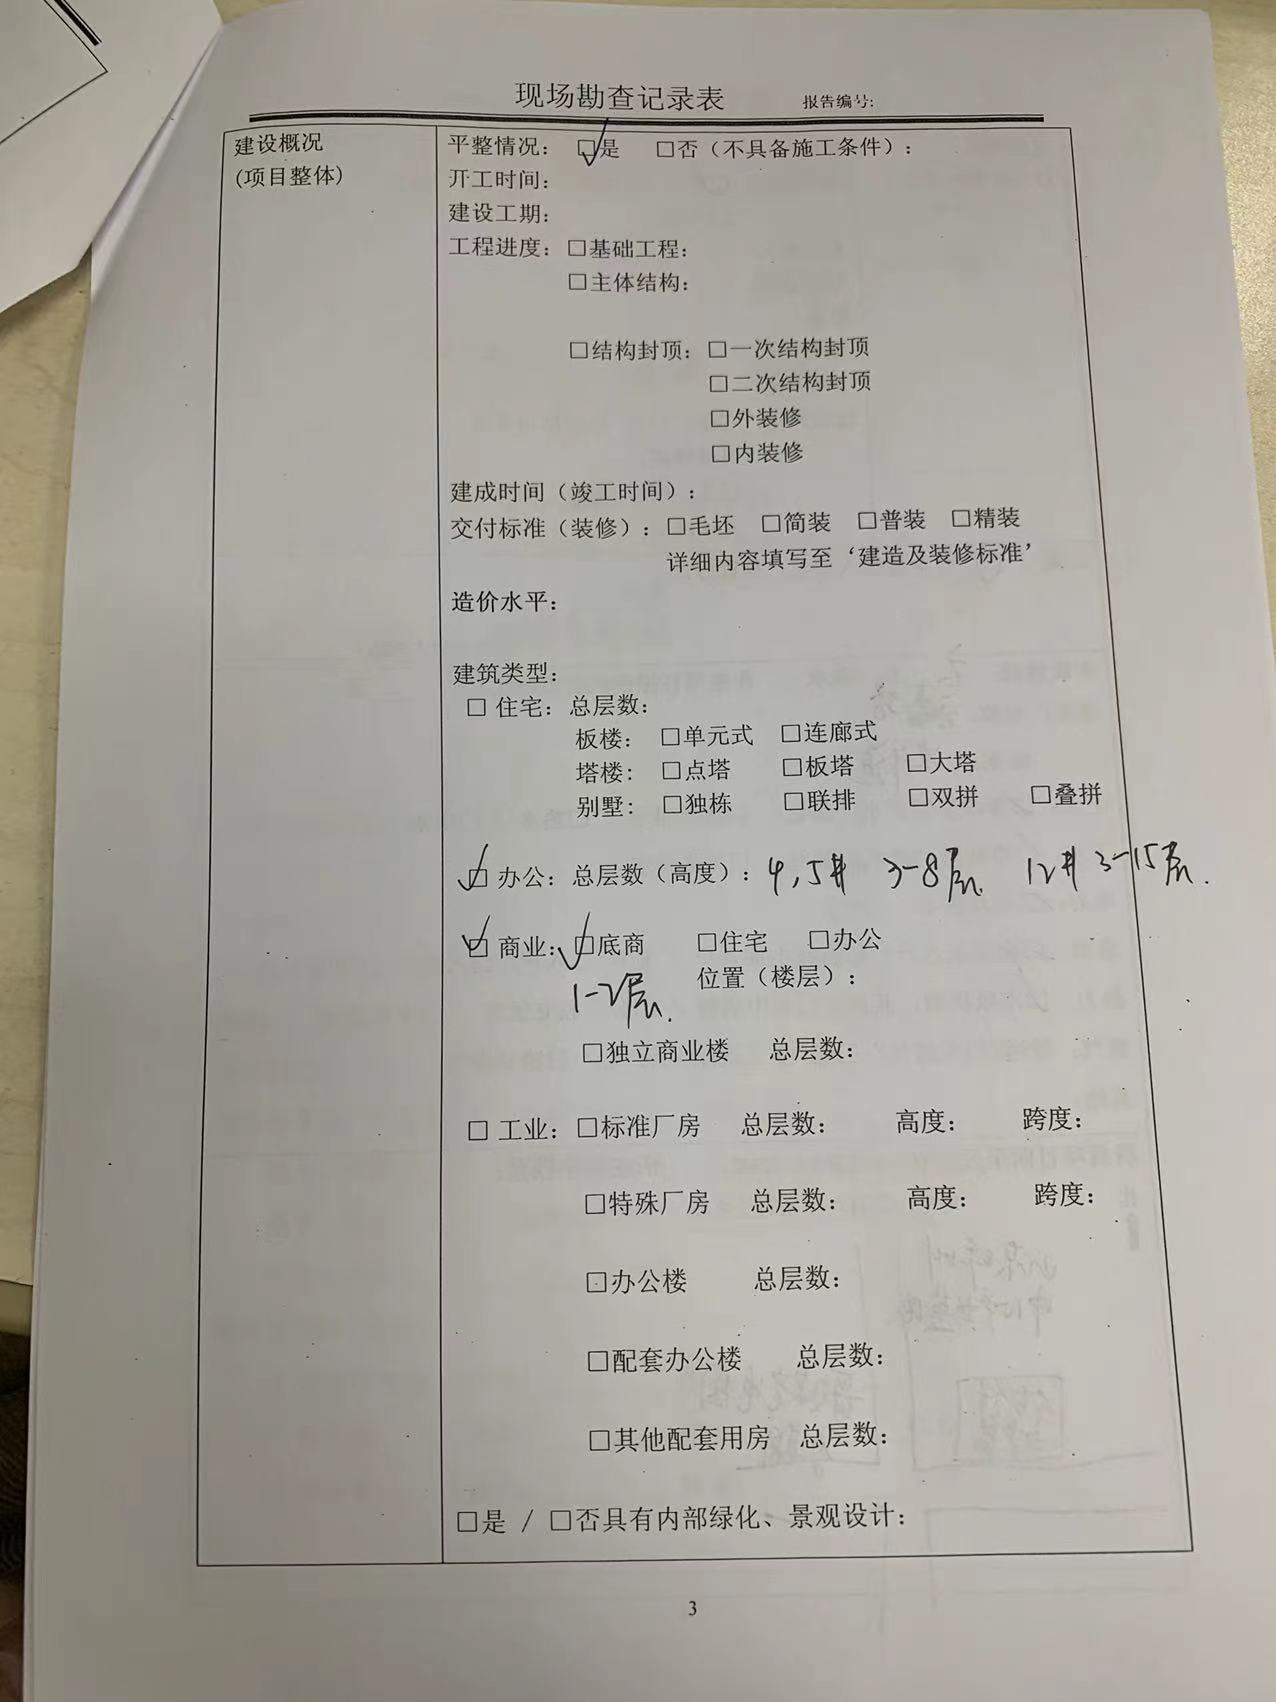 现场勘查记录表 报告编号:
建设概况
(项目整体)
平整情况: ☑是 □否（不具备施工条件）:
开工时间:
建设工期:
工程进度: □基础工程:
□主体结构:
□结构封顶: □一次结构封顶
□二次结构封顶
□外装修
□内装修
建成时间（竣工时间）:
交付标准（装修）: □毛坯 □简装 □普装 □精装
详细内容填写至‘建造及装修标准’
造价水平:
建筑类型:
□ 住宅: 总层数:
板楼: □单元式 □连廊式
塔楼: □点塔 □板塔 □大塔
别墅: □独栋 □联排 □双拼 □叠拼
☑ 办公: 总层数（高度）: 4,5# 3-8层 12# 3-15层.
☑ 商业: ☑底商 □住宅 □办公
位置（楼层）:
1-2层.
□独立商业楼 总层数:
□ 工业: □标准厂房 总层数: 高度: 跨度:
□特殊厂房 总层数: 高度: 跨度:
□办公楼 总层数:
□配套办公楼 总层数:
□其他配套用房 总层数:
□是 / □否具有内部绿化、景观设计:
3